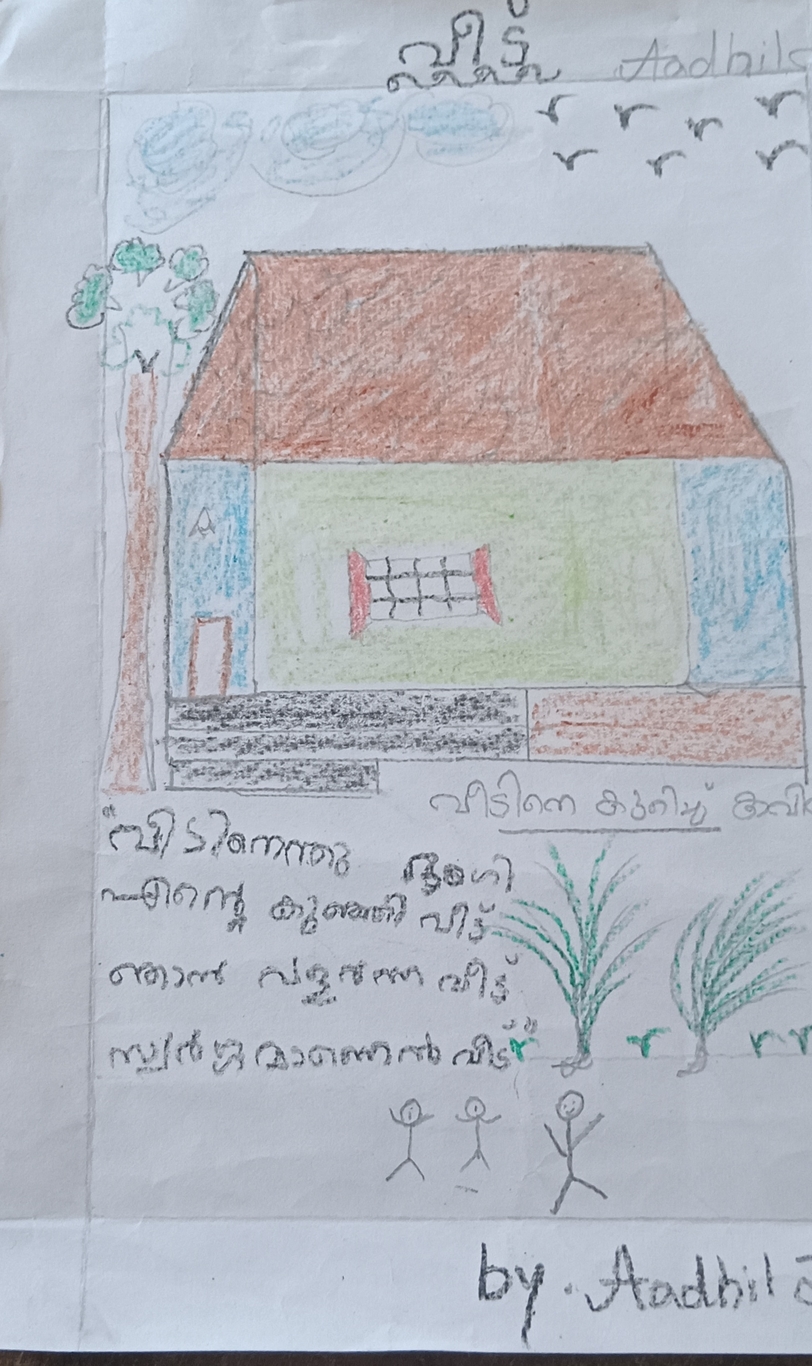 വീട്
Aadhil
വീടിനെ കുറിച്ച്
"വീടിനെന്തു ഭംഗി
എന്റെ കുഞ്ഞു വീട്
ഞാൻ വളർന്ന വീട്
സ്വർഗ്ഗമാണെൻ വീട്"
by. Aadhil